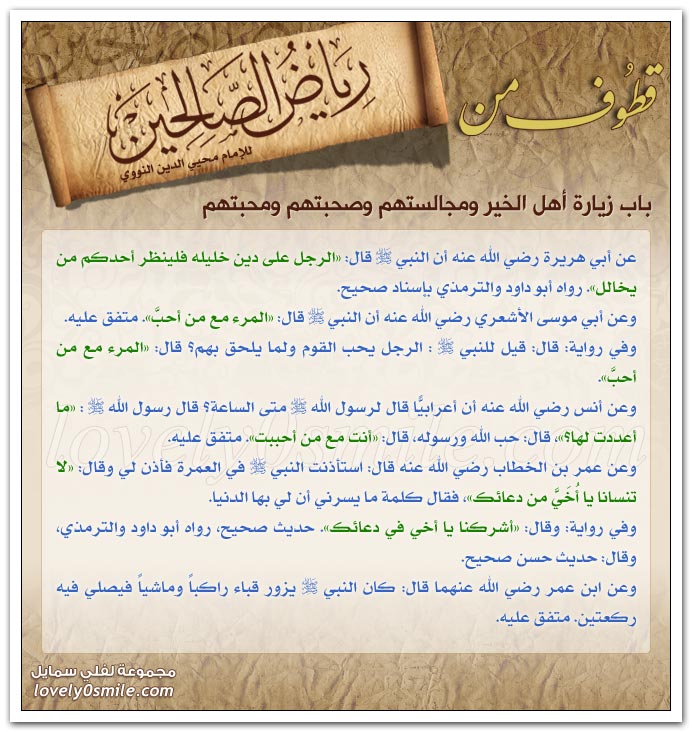 قطوف من
رياض الصالحين
للإمام محيي الدين النووي
باب زيارة أهل الخير ومجالستهم وصحبتهم ومحبتهم
عن أبي هريرة رضي الله عنه أن النبي ﷺ قال: «الرجل على دين خليله فلينظر أحدكم من
يخالل». رواه أبو داود والترمذي بإسناد صحيح.
وعن أبي موسى الأشعري رضي الله عنه أن النبي ﷺ قال: «المرء مع من أحبَّ». متفق عليه.
وفي رواية: قال: قيل للنبي ﷺ : الرجل يحب القوم ولما يلحق بهم؟ قال: «المرء مع من
أحبَّ».
وعن أنس رضي الله عنه أن أعرابيًّا قال لرسول الله ﷺ متى الساعة؟ قال رسول الله ﷺ : «ما
أعددت لها؟»، قال: حب الله ورسوله، قال: «أنت مع من أحببت». متفق عليه.
وعن عمر بن الخطاب رضي الله عنه قال: استأذنت النبي ﷺ في العمرة فأذن لي وقال: «لا
تنسانا يا أُخَيَّ من دعائك»، فقال كلمة ما يسرني أن لي بها الدنيا.
وفي رواية: وقال: «أشركنا يا أخي في دعائك». حديث صحيح، رواه أبو داود والترمذي،
وقال: حديث حسن صحيح.
وعن ابن عمر رضي الله عنهما قال: كان النبي ﷺ يزور قباء راكباً وماشياً فيصلي فيه
ركعتين. متفق عليه.
lovely0smile.com
مجموعة لفلي سمايل
lovely0smile.com